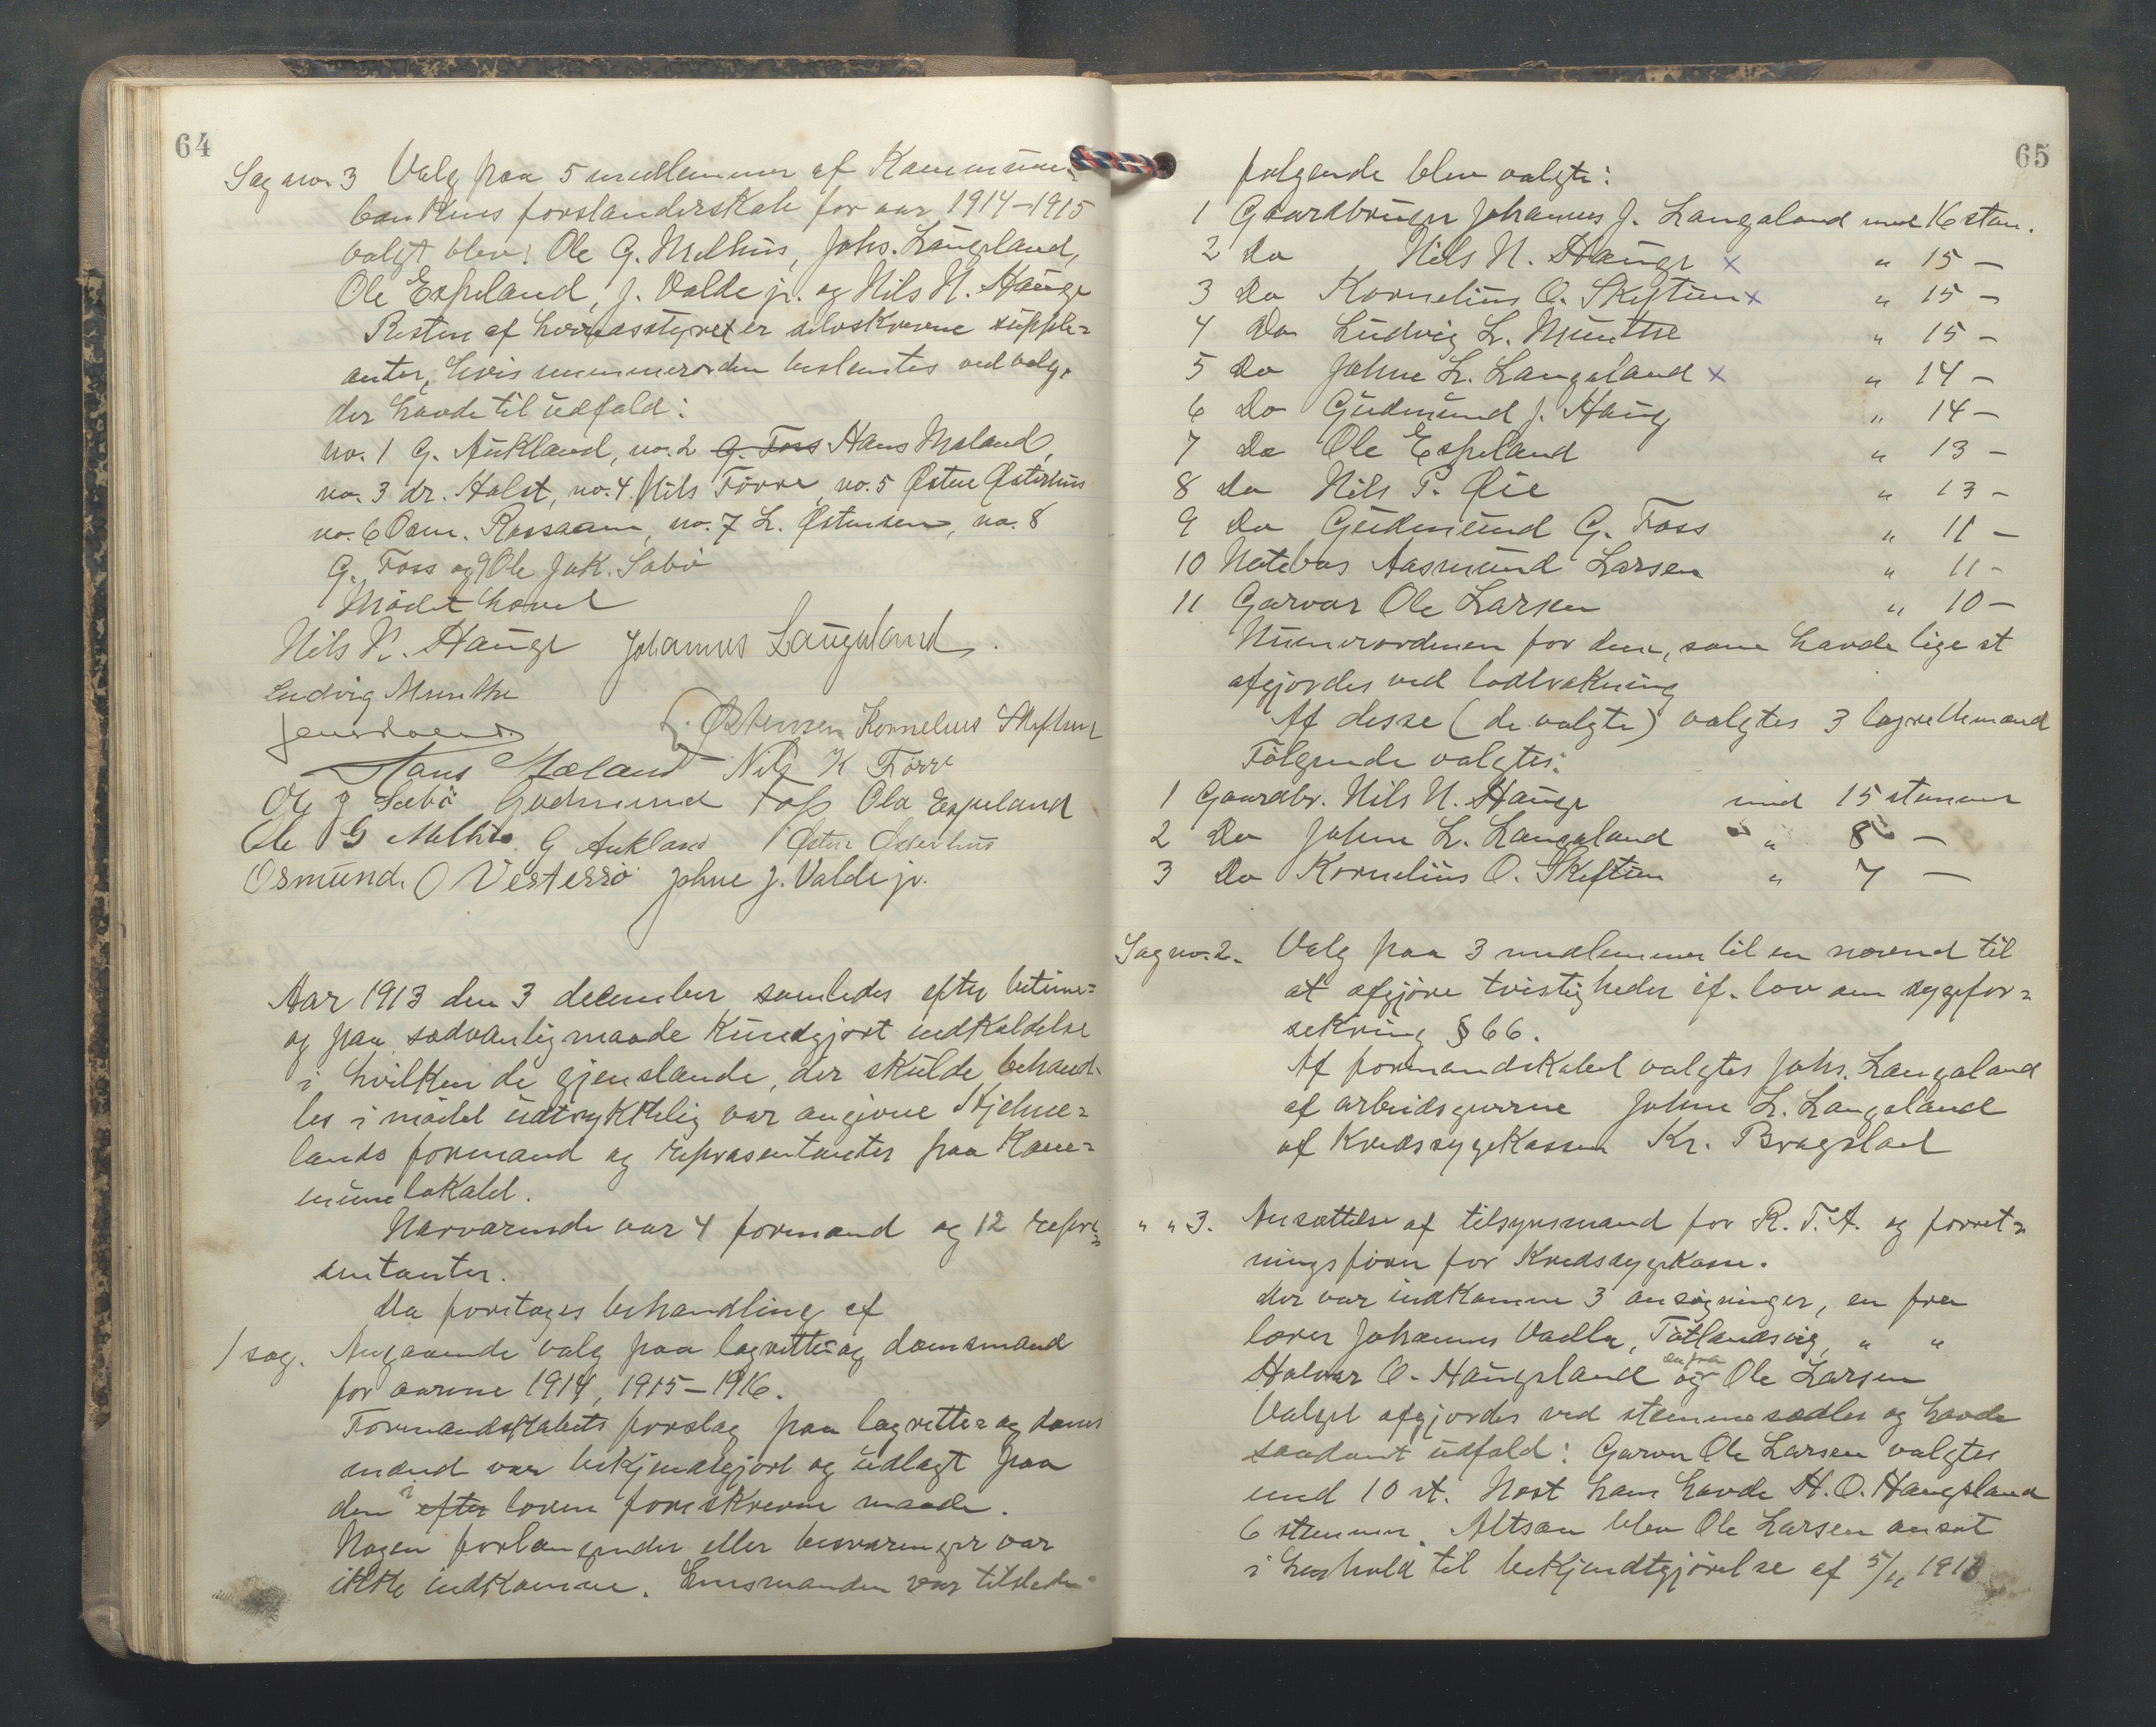 64
Sag no. 3 Valg paa 5 medlemmer af Kommune-
bankens forstanderskab for aar 1914-1915
valgt blev: Ole G. Melhus, Johs. Langeland,
Ole Espeland, J. Valde jr. og Nils N. Hauge
Resten af herredsstyret er selvskrevne supple-
anter, hvis nummerorden bestemtes ved valg,
der havde til udfald:
no. 1 G. Aukland, no. 2 G. Foss Hans Mæland,
no. 3 dr. Holst, no. 4 Nils Førre, no. 5 Østen Østerhus
no. 6 Osm. , no. 7 L. Østensen, no. 8
G. Foss og 9 Ole Jak. Sæbø
Mødet hævet
Nils N. Hauge Johannes Langeland.
Ludvig Munthe
L. Østensen Kornelius Skeftun
Hans Mæland Nils K Førre
Ole J Sæbø Gudmund Foss Ola Espeland
Ole G Melhus. G Aukland Østen Østerhus
Osmund. O Vestersjø Johne J. Valde jr.
Aar 1913 den 3 december samledes efter betime-
og paa sædvanlig maade kundgjort indkaldelse
i hvilken de gjenstande, der skulde behand-
les i mødet udtrykkelig var angivne Skjolde-
lands formænd og repræsentanter paa Kom-
munelokalet.
Nærværende var 4 formænd og 12 repræ-
sentanter.
Da foretoges behandling af
1 sag. Angaaende valg paa lagrette- og domsmænd
for aarene 1914, 1915-1916.
Formandskabets forslag paa lagrette- og doms
mænd var bekjendtgjort og udlagt paa
den i efter loven foreskrevne maade.
Nogen forlangender eller besværinger var
ikke indkomne. Lensmanden var tilstede
65
følgende blev valgte:
1 Gaardbruger Johannes J. Langeland med 16 stem.
2 Do Nils N. Hauge x " 15 -
3 Do Kornelius O. Skeftun x " 15 -
4 Do Ludvig L. Munthe " 15 -
5 Do Johne L. Langeland x " 14 -
6 Do Gudmund J. Haug " 14 -
7 Do Ole Espeland " 13 -
8 Do Nils P. Øie " 13 -
9 Do Gudmund G. Foss " 11 -
10 Notebas Aasmund Larsen " 11 -
11 Garver Ole Larsen " 10 -
Numerordenen for dem, som havde lige st
afgjordes ved lodtrækning
Af disse (de valgte) valgtes 3 lagrettemænd
Følgende valgtes:
1 Gaardbr. Nils N. Hauge med 15 stemmer
2 Do Johne L. Langeland " 8 -
3 Do Kornelius O. Skeftun " 7 -
Sag no. 2. Valg paa 3 medlemmer til en nævnd til
at afgjøre tvistigheder if. lov om sygefor-
sikring § 66.
Af formandskabet valgtes Johs. Langeland
af arbeidsgiverne Johne L. Langeland
af Kredssygekassen Kr. Bragstad
" " 3. Ansættelse af tilsynsmand for R. F. A. og forret-
ningsfører for Kredssygekassen.
Der var indkomne 3 ansøgninger, en fra
lærer Johannes Vadla, Tøtlandsvig, " "
Halvar O. Haugeland og en fra Ole Larsen
Valget afgjordes ved stemmesedler og havde
saadant udfald: Garver Ole Larsen valgtes
med 10 st. Næst ham havde H. O. Haugeland
6 stemmer. Altsaa blev Ole Larsen ansat
i henhold til bekjendtgjørelse af 5/11 1913